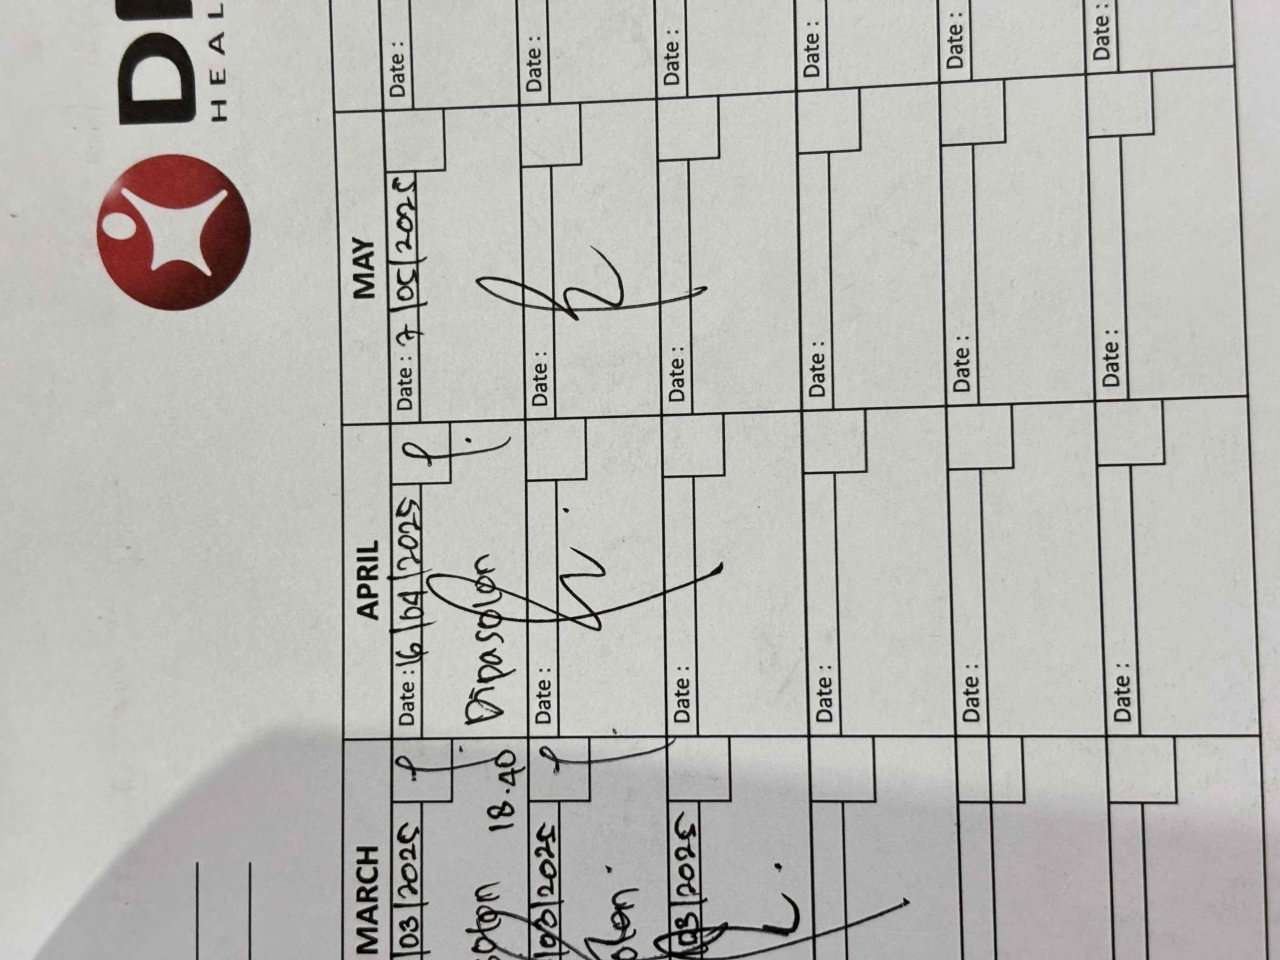 HEAL
MARCH APRIL MAY
03/2025 Date : 16/04/2025 Date : 7/05/2025 Date :
18.40 Dipasolon
03/2025 Date : Date : Date :
03/2025 Date : Date : Date :
Date : Date : Date :
Date : Date : Date :
Date : Date : Date :